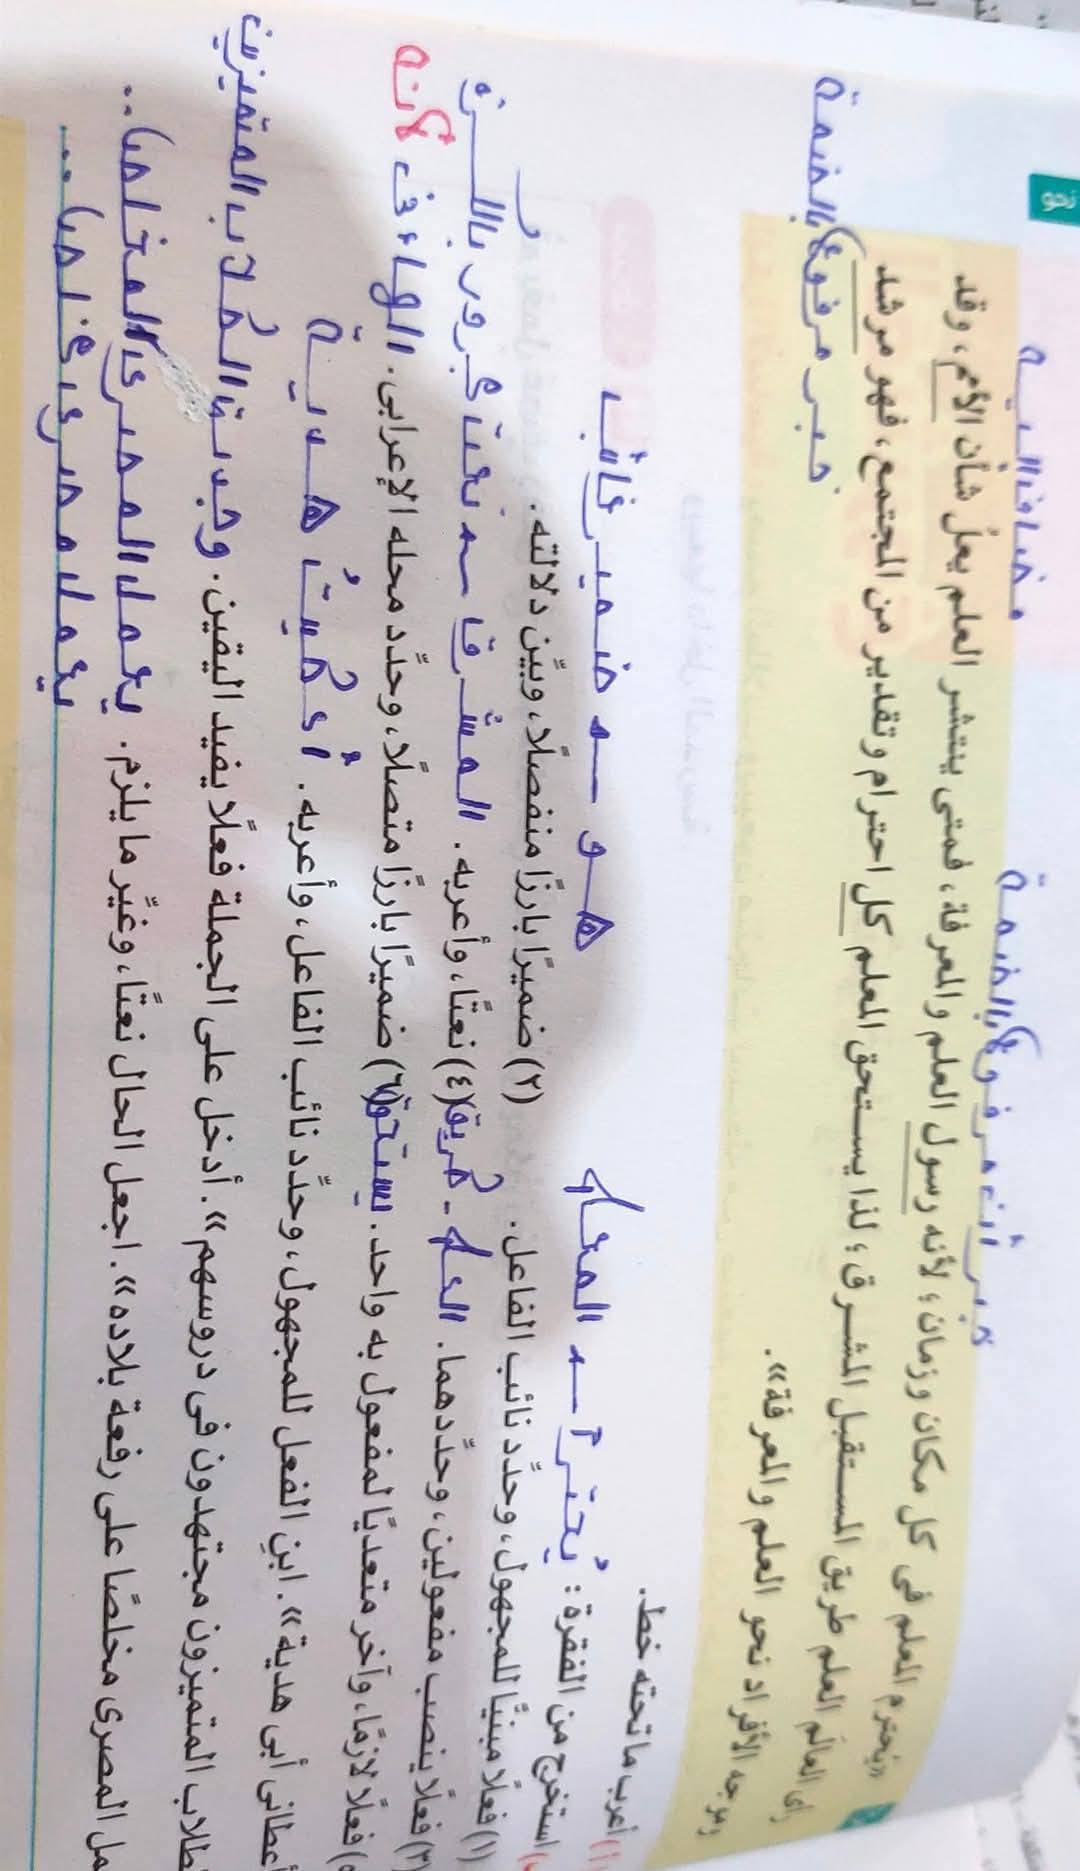 نحو
مضاف إليه
خبر أن مرفوع بالضمة
«يُحترم المعلم في كل مكان وزمان؛ لأنه رسول العلم والمعرفة، فمتى ينتشر العلم يعلُ شأن الأمم، وقد
رأى العالَم العلم طريق المستقبل المشرق؛ لذا يستحق المعلم كل احترام وتقدير من المجتمع، فهو مرشد
وموجه الأفراد نحو العلم والمعرفة».
خبر مرفوع بالضمة
أعرب ما تحته خط.
استخرج من الفقرة: يُحترم ← المعلم
هو ← ضمير غائب
(١) فعلًا مبنيًّا للمجهول، وحدِّد نائب الفاعل.
(٢) ضميرًا بارزًا منفصلًا، وبيِّن دلالته.
(٣) فعلًا ينصب مفعولين، وحدِّدهما. العلم - طريق
(٤) نعتًا، وأعربه. المشرق ← نعت مجرور بالكسرة
فعلًا لازمًا، وآخر متعديًا لمفعول به واحد. يستحق
(٦) ضميرًا بارزًا متصلًا، وحدِّد محله الإعرابي. الهاء في لأنه
أعطاني أبي هدية». ابنِ الفعل للمجهول، وحدِّد نائب الفاعل، وأعربه. أُعطيتُ هدية
طلاب المتميزون مجتهدون في دروسهم». أدخل على الجملة فعلًا يفيد اليقين. وجدت الطلاب المتميزين
المصري مخلصًا على رفعة بلاده». اجعل الحال نعتًا، وغيِّر ما يلزم. يعمل المصري المخلص..
يعمل مصري مخلص..